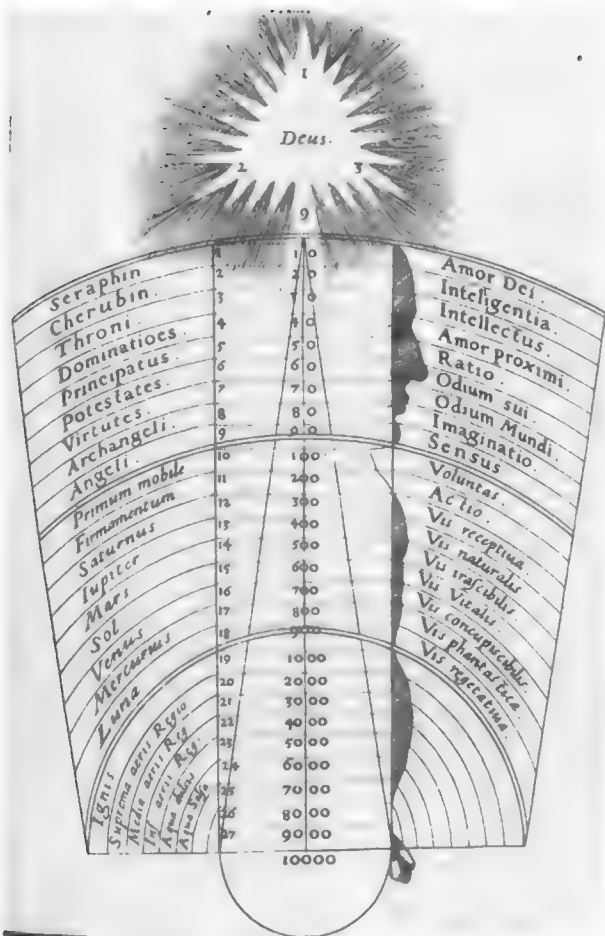 1
Deus.
2 3
9
Seraphin
Cherubin
Throni
Dominatioes
Principatus
Potestates
Virtutes
Archangeli
Angeli
Primum mobile
Firmamentum
Saturnus
Iupiter
Mars
Sol
Venus
Mercurius
Luna
Ignis
Suprema aeris Regio
Media aeris Reg
Inf aeris Reg.
Aqua dulcis
Aqua Salsa
1
2
3
4
5
6
7
8
9
10
11
12
13
14
15
16
17
18
19
20
21
22
23
24
25
26
27
10
20
30
40
50
60
70
80
90
100
200
300
400
500
600
700
800
900
1000
2000
3000
4000
5000
6000
7000
8000
9000
10000
Amor Dei.
Inteligentia
Intellectus.
Amor proximi.
Ratio.
Odium sui
Odium Mundi.
Imaginatio.
Sensus
Voluntas.
Actio.
Vis receptiva.
Vis naturalis
Vis irascibilis
Vis Vitalis
Vis concupiscibilis.
Vis phantastica
Vis vegetativa.